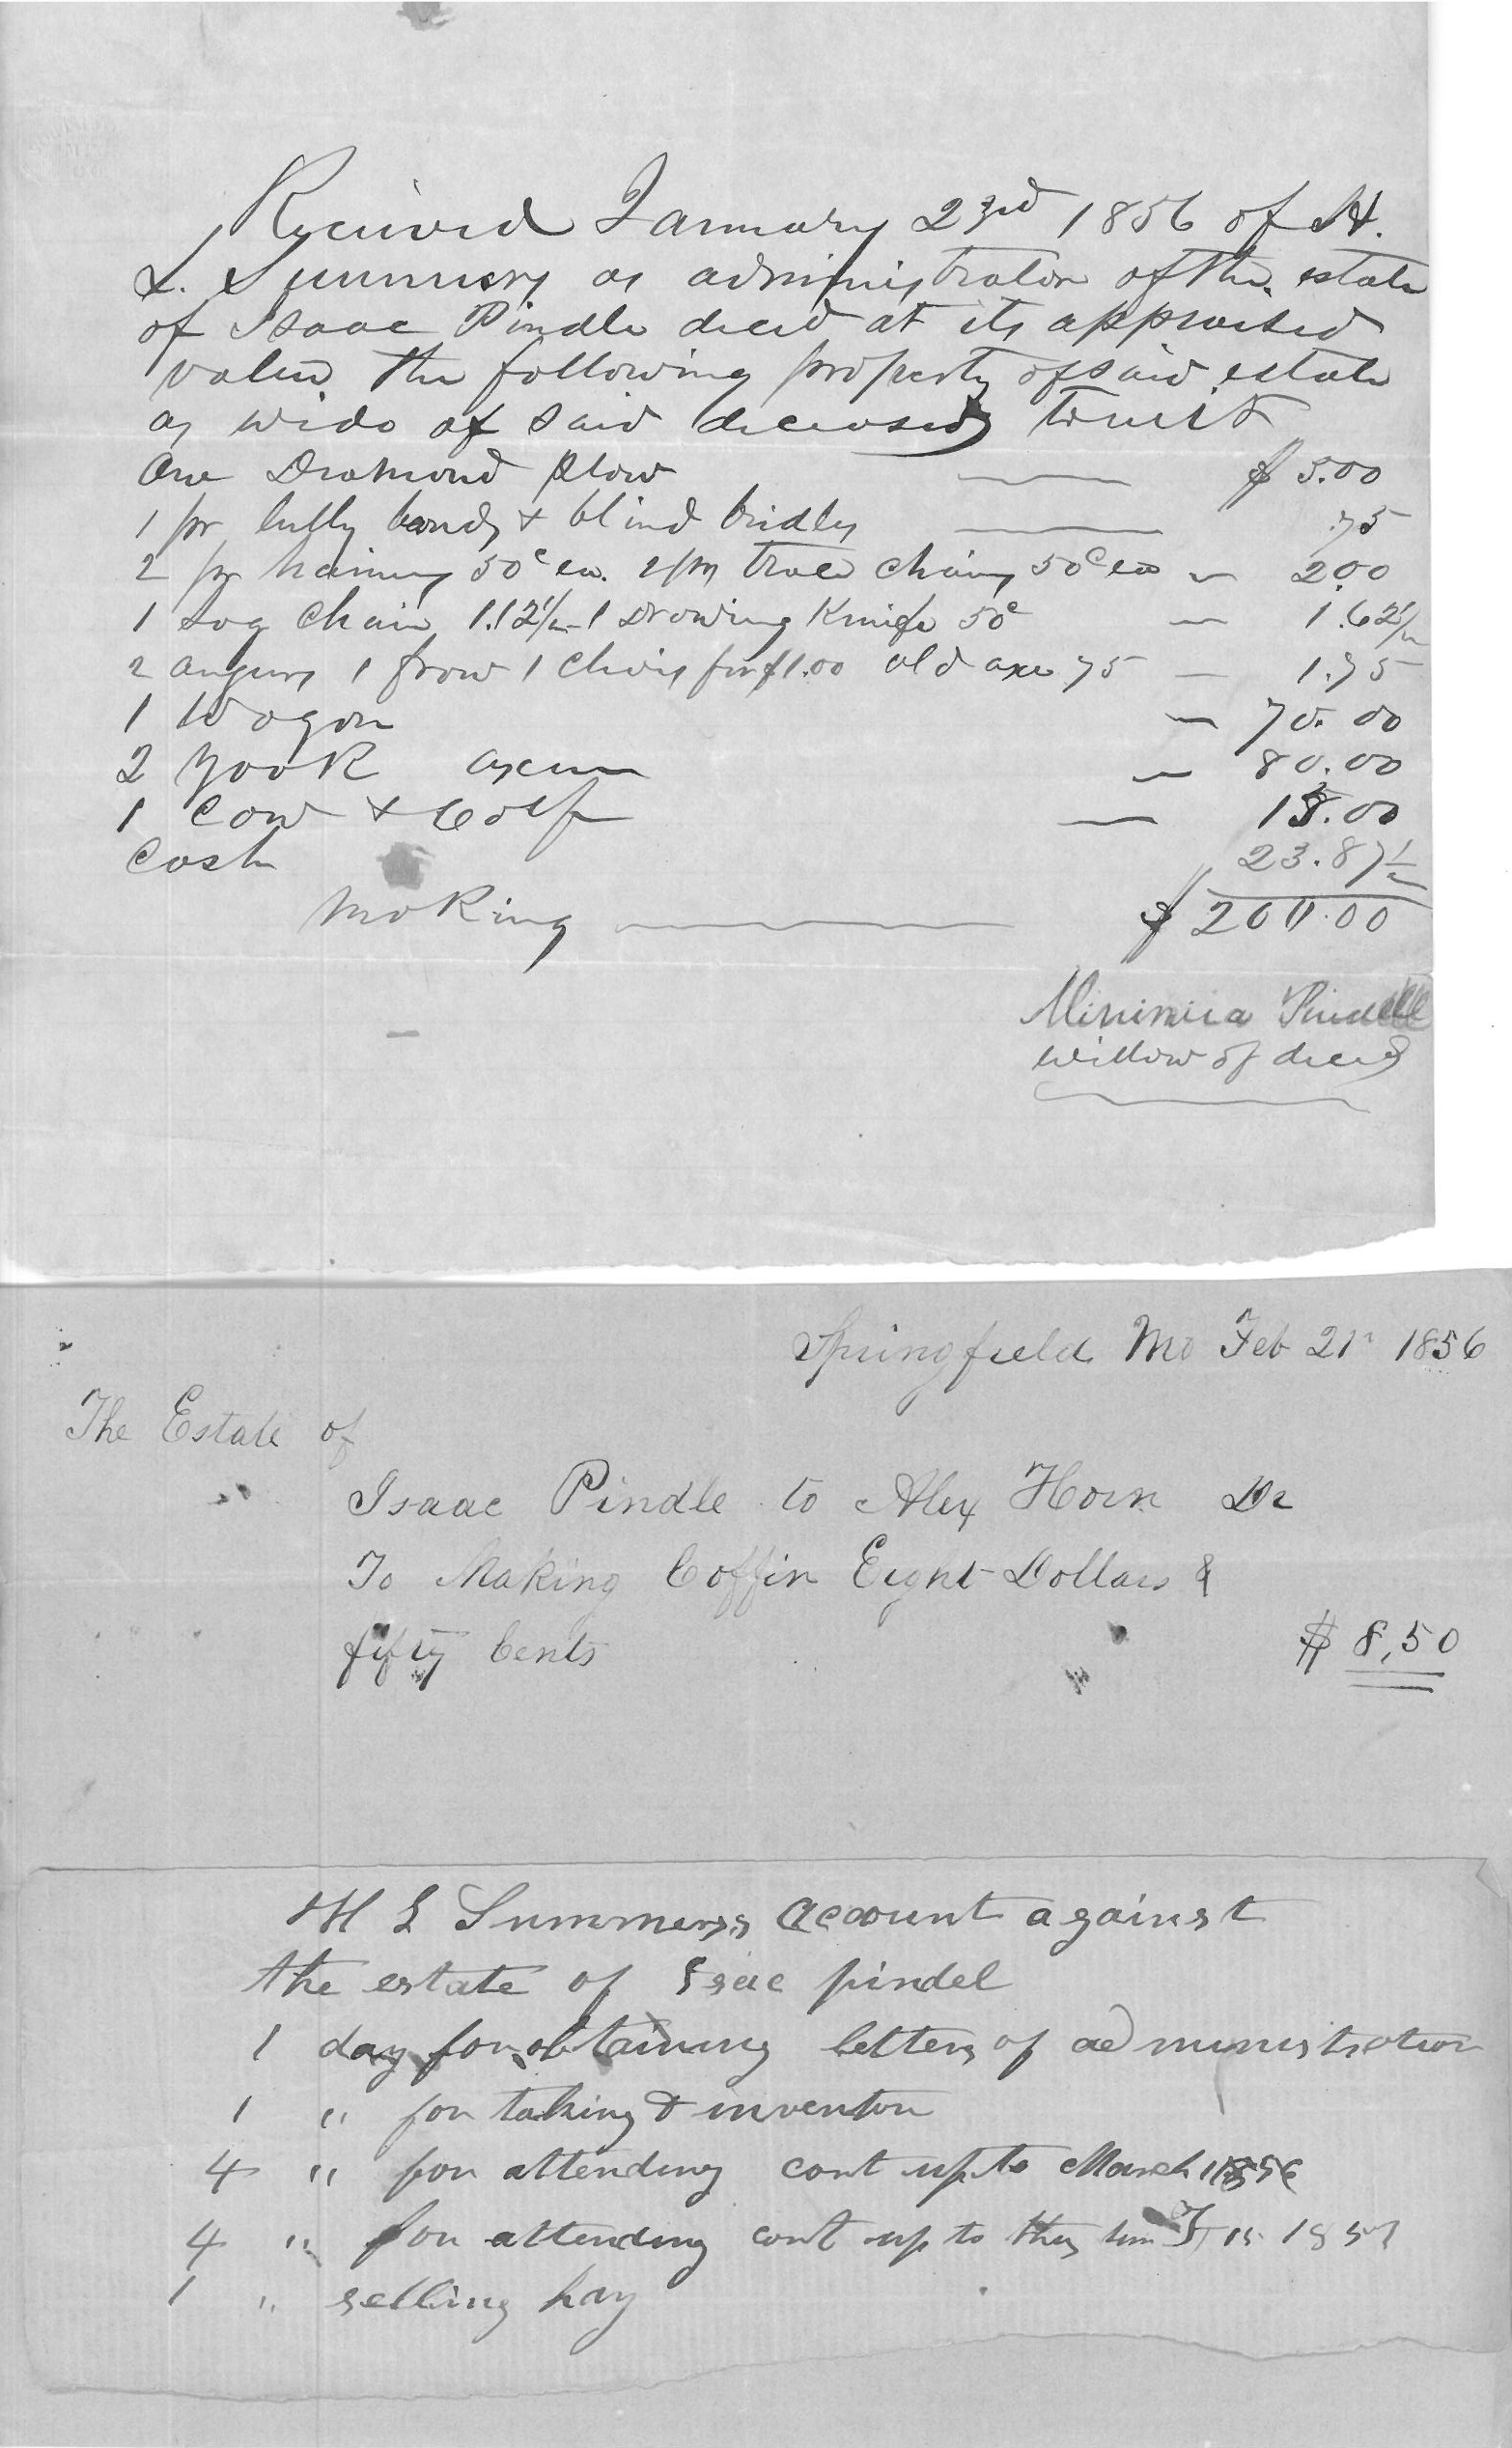 Received January 23rd 1856 of H.
L. Summers as administrator of the estate
of Isaac Pindle decd at its appraised
value the following property of said estate
as wido of said deceased towit
One Diamond Plow $ 5.00
1 pr bands & blind bridles .75
2 pr haimes 50c ea. 2 pr trace chains 50c ea 2.00
1 Log Chain 1.12½ 1 Drawing Knife 50c 1.62½
2 augurs 1 frow 1 Clevis for $1.00 old axe 75 1.75
1 Wagon 70.00
2 yook oxen 80.00
1 Cow & Calf 15.00
Cash 23.87½
Making $ 200.00
Pindell
widow of decd
Springfield Mo Feb 21 1856
The Estate of
Isaac Pindle to Alex Horn Dr
To Making Coffin Eight Dollars &
fifty Cents $ 8,50
H L Summers account against
the estate of Isac pindel
1 day for obtaining letters of administration
1 " for taking inventory
4 " for attending cort up to March 1856
4 " for attending cort up to this 1857
1 " selling hay